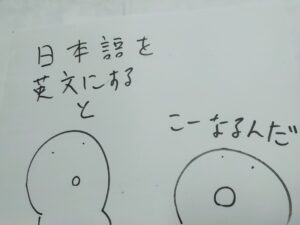 日本語を
英文にする
と
こーなるんだ